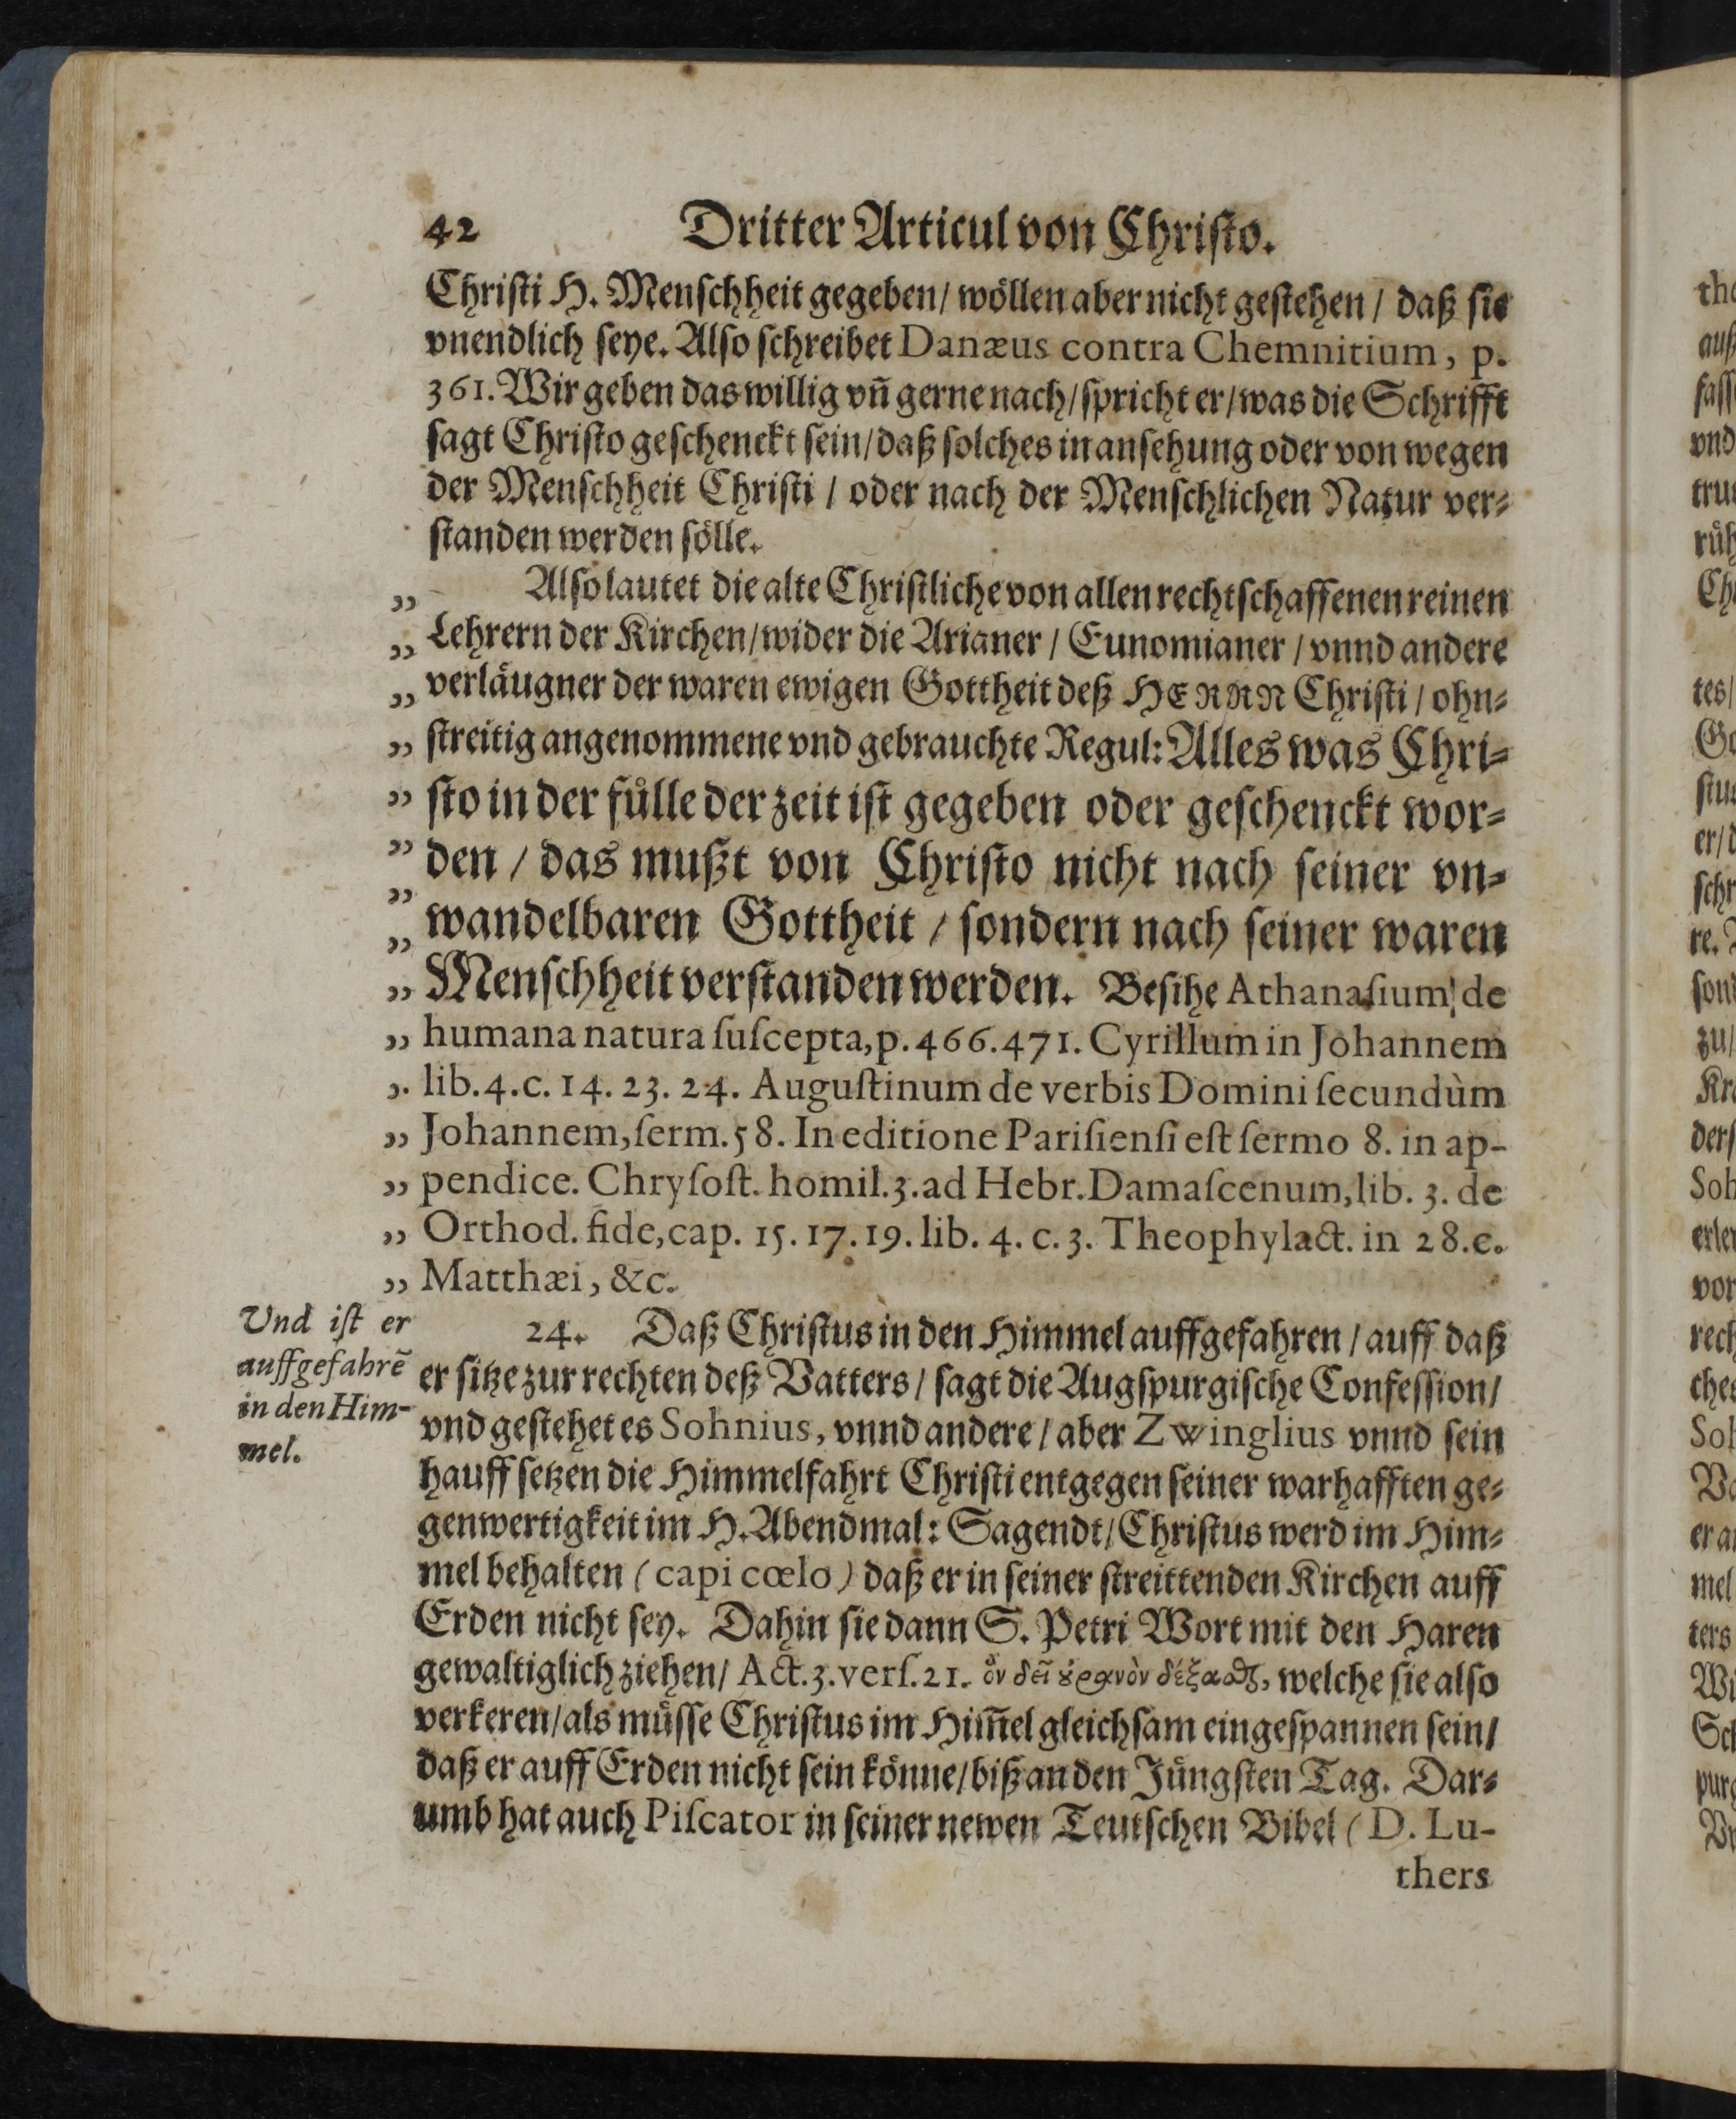 42 Dritter Articul von Chriſto.
Chriſti H. Menſchheit gegeben/ wöllen aber nicht geſtehen / daß ſie
vnendlich ſeye. Alſo ſchreibet Danæus contra Chemnitium, p.
361. Wir geben das willig vñ gerne nach/ ſpricht er/ was die Schrifft
ſagt Chriſto geſchenckt ſein/ daß ſolches in anſehung oder von wegen
der Menſchheit Chriſti / oder nach der Menſchlichen Natur ver-
ſtanden werden ſölle.
„ Alſo lautet die alte Chriſtliche von allen rechtſchaffenen reinen
„ Lehrern der Kirchen/ wider die Arianer / Eunomianer / vnnd andere
„ verläugner der waren ewigen Gottheit deß HERRN Chriſti / ohn-
„ ſtreitig angenommene vnd gebrauchte Regul: Alles was Chri-
„ ſto in der fülle der zeit iſt gegeben oder geſchenckt wor-
„ den / das mußt von Chriſto nicht nach ſeiner vn-
„ wandelbaren Gottheit / ſondern nach ſeiner waren
„ Menſchheit verſtanden werden. Beſihe Athanaſium de
„ humana natura ſuſcepta, p. 466. 471. Cyrillum in Johannem
„ lib. 4. c. 14. 23. 24. Auguſtinum de verbis Domini ſecundùm
„ Johannem, ſerm. 58. In editione Pariſienſi eſt ſermo 8. in ap-
„ pendice. Chryſoſt. homil. 3. ad Hebr. Damaſcenum, lib. 3. de
„ Orthod. fide, cap. 15. 17. 19. lib. 4. c. 3. Theophylact. in 28. c.
„ Matthæi, &c.
Und iſt er
auffgefahrẽ
in den Him-
mel.
24. Daß Chriſtus in den Himmel auffgefahren / auff daß
er ſitze zur rechten deß Vatters / ſagt die Augſpurgiſche Confeſſion/
vnd geſtehet es Sohnius, vnnd andere / aber Zwinglius vnnd ſein
hauff ſetzen die Himmelfahrt Chriſti entgegen ſeiner warhafften ge-
genwertigkeit im H. Abendmal: Sagendt/ Chriſtus werd im Him-
mel behalten (capi cœlo) daß er in ſeiner ſtreittenden Kirchen auff
Erden nicht ſey. Dahin ſie dann S. Petri Wort mit den Haren
gewaltiglich ziehen/ Act. 3. verſ. 21. ὃν δεῖ ȣ̓ρανὸν δέξαϑζ, welche ſie alſo
verkeren/ als müſſe Chriſtus im Him̃el gleichſam eingeſpannen ſein/
daß er auff Erden nicht ſein könne/ biß an den Jüngſten Tag. Dar-
umb hat auch Piſcator in ſeiner newen Teutſchen Bibel (D. Lu-
thers